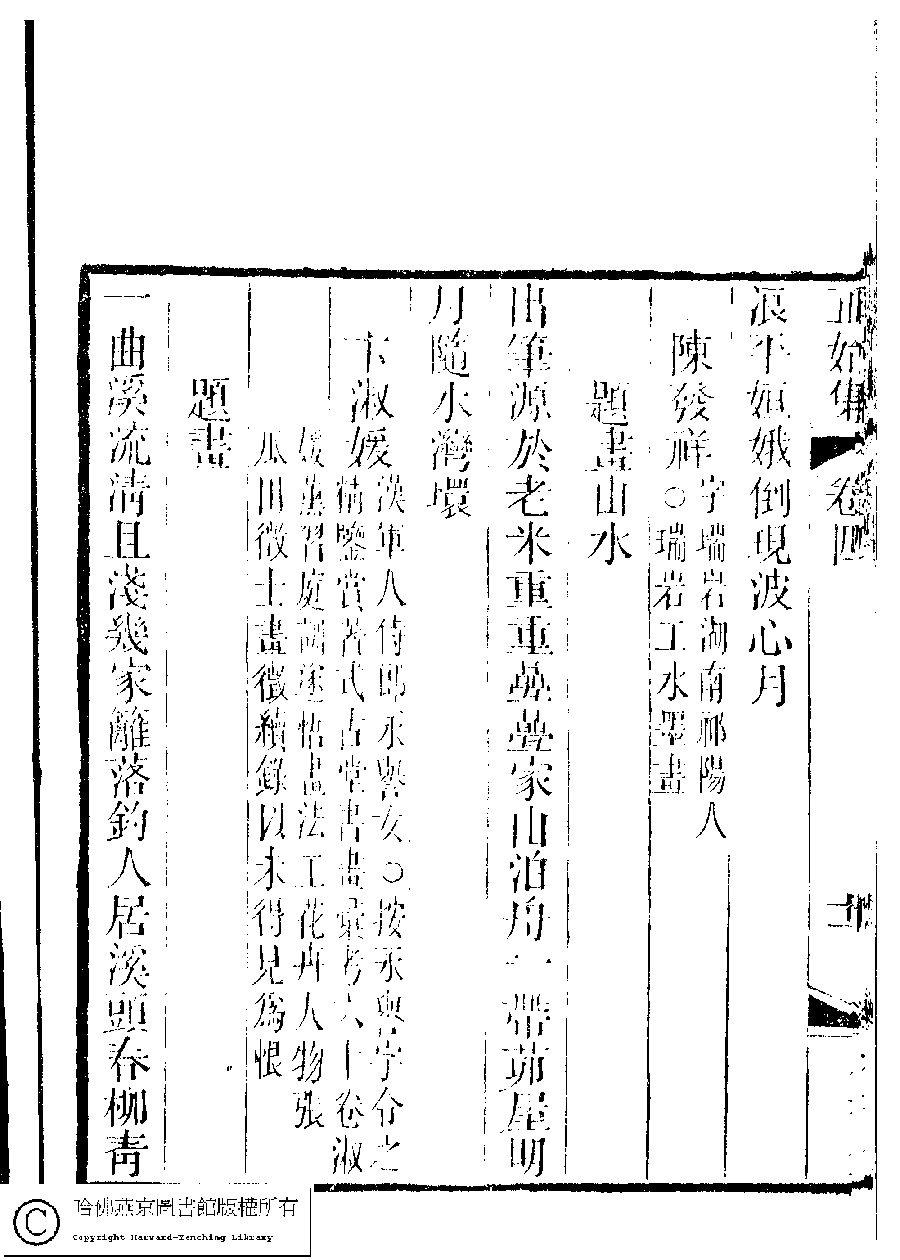 正始集 卷四
浪平姮娥倒現波心月
陳發祥 字瑞岩湖南祁陽人
○瑞岩工水墨畫
題畫山水
出筆源於老米重重疊疊家山泊舟一帶茆屋明
月隨水灣環
卞淑媛 漢軍人侍郎永譽女○按永與字令之
精鑒賞著式古堂書畫彙考六十卷淑
媛薰習庭訓遂悟畫法工花卉人物張
瓜田徵士畫徵續錄以未得見為恨
題畫
一曲溪流清且淺幾家籬落釣人居溪頭春柳青
哈佛燕京圖書館版權所有
Copyright Harvard-Yenching Library